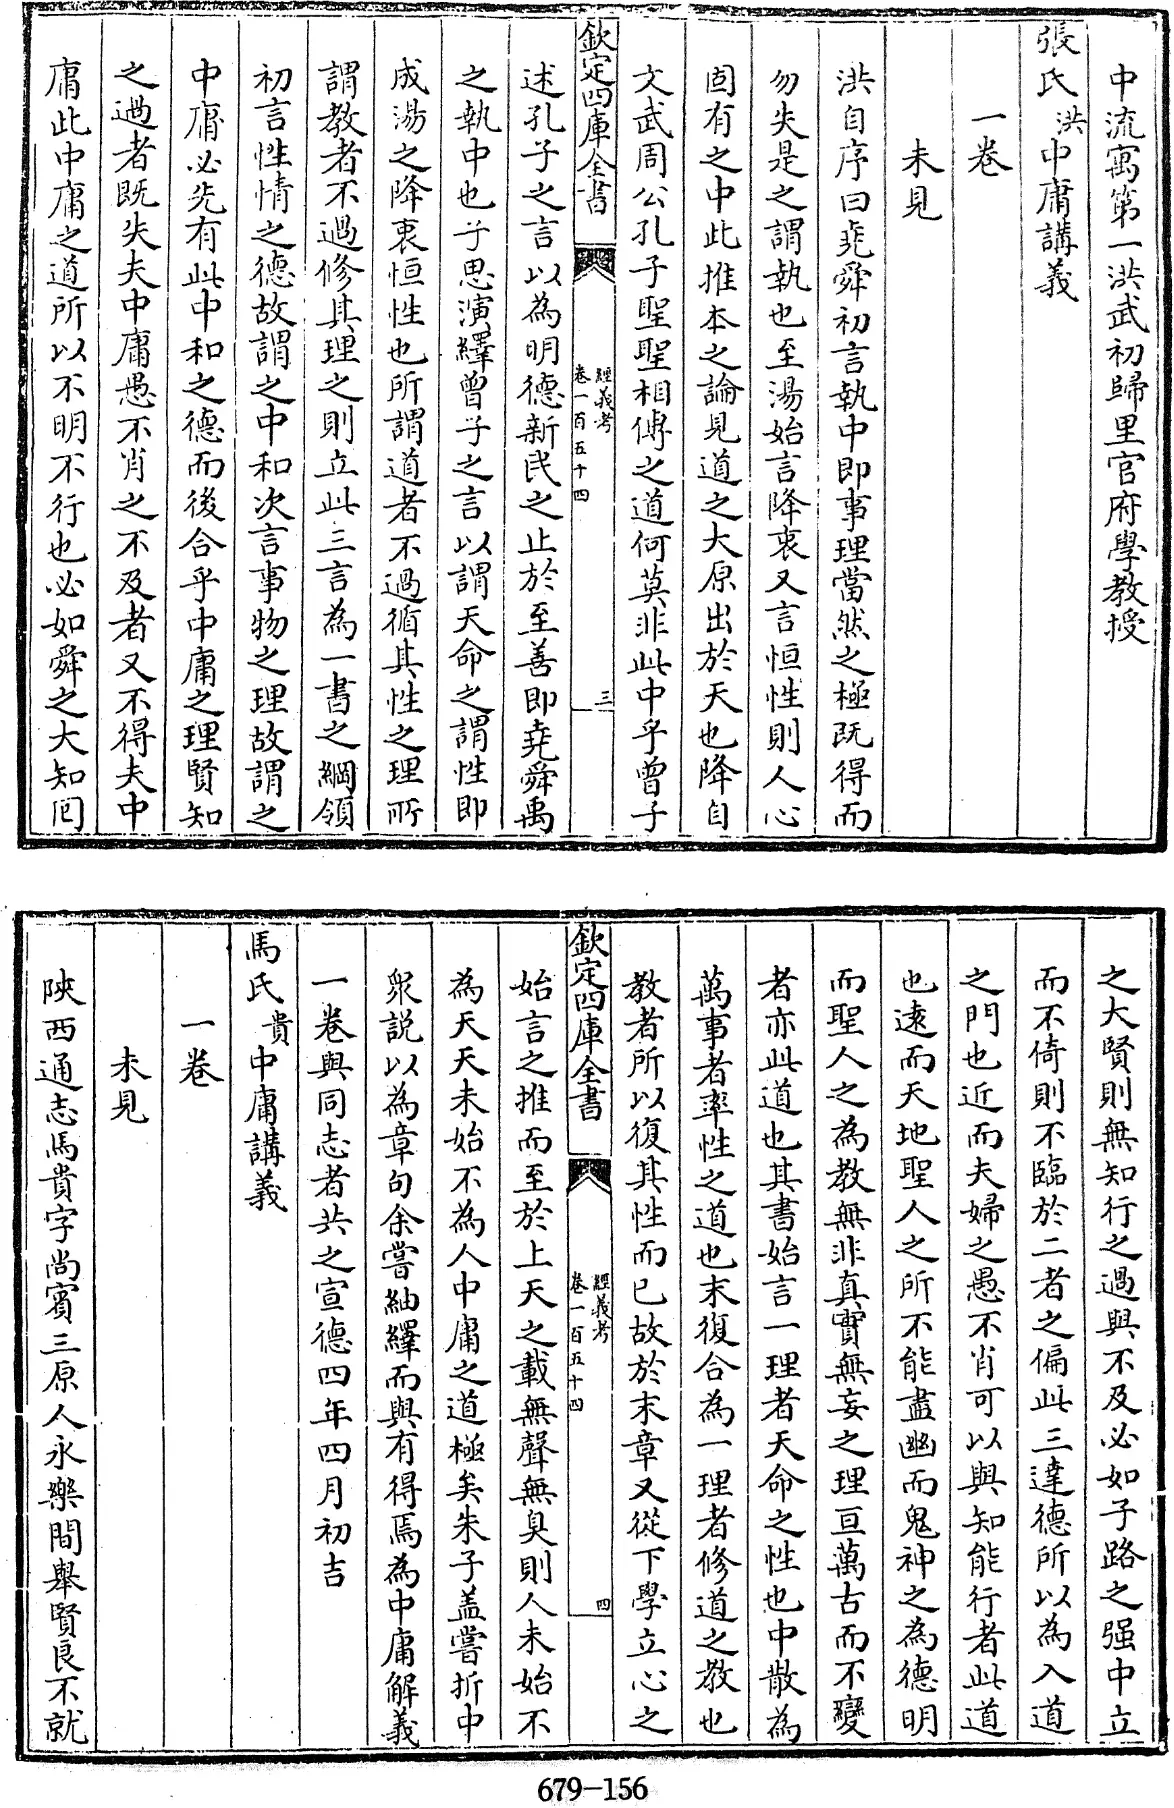 中流寓第一洪武初歸里官府學教授
張氏洪中庸講義
一卷
未見
洪自序曰堯舜初言執中即事理當然之極既得而
勿失是之謂執也至湯始言降衷又言恒性則人心
固有之中此推本之論見道之大原出於天也降自
文武周公孔子聖聖相傳之道何莫非此中乎曾子
欽定四庫全書
經義考
卷一百五十四
三
述孔子之言以為明德新民之止於至善即堯舜禹
之執中也子思演繹曾子之言以謂天命之謂性即
成湯之降衷恒性也所謂道者不過循其性之理所
謂教者不過修其理之則立此三言為一書之綱領
初言性情之德故謂之中和次言事物之理故謂之
中庸必先有此中和之德而後合乎中庸之理賢知
之過者既失夫中庸愚不肖之不及者又不得夫中
庸此中庸之道所以不明不行也必如舜之大知回
之大賢則無知行之過與不及必如子路之强中立
而不倚則不臨於二者之偏此三達德所以為入道
之門也近而夫婦之愚不肖可以與知能行者此道
也遠而天地聖人之所不能盡幽而鬼神之為德明
而聖人之為教無非真實無妄之理亘萬古而不變
者亦此道也其書始言一理者天命之性也中散為
萬事者率性之道也末復合為一理者修道之教也
教者所以復其性而已故於末章又從下學立心之
欽定四庫全書
經義考
卷一百五十四
四
始言之推而至於上天之載無聲無臭則人未始不
為天天未始不為人中庸之道極矣朱子盖嘗折中
衆説以為章句余嘗紬繹而與有得焉為中庸解義
一卷與同志者共之宣德四年四月初吉
馬氏貴中庸講義
一卷
未見
陜西通志馬貴字尚賓三原人永樂間舉賢良不就
679-156